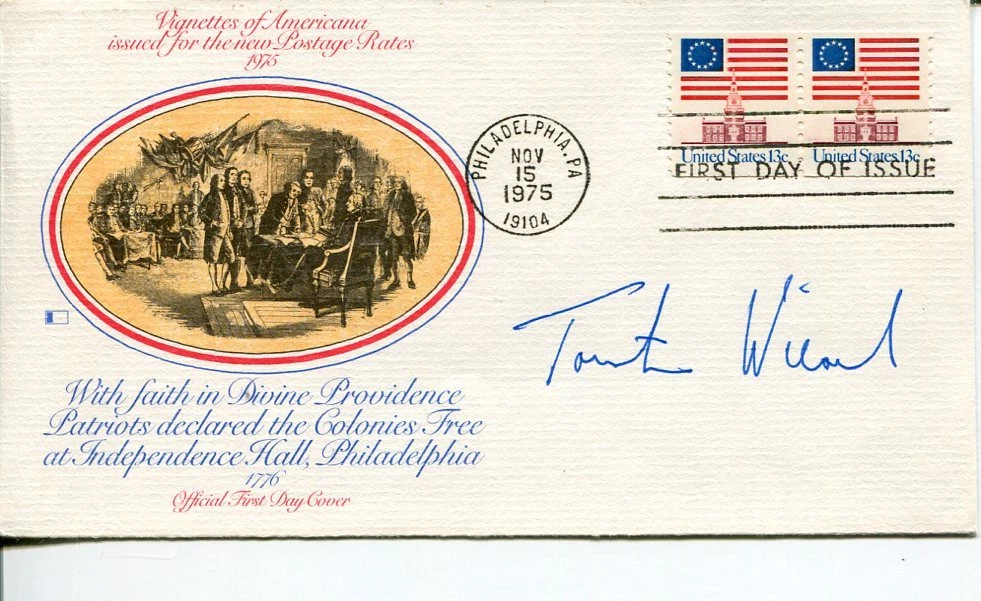 Vignettes of Americana
issued for the new Postage Rates
1975
PHILADELPHIA, PA
NOV
15
1975
19104
United States 13c
United States 13c
FIRST DAY OF ISSUE
Torsten Wiesel
With faith in Divine Providence
Patriots declared the Colonies Free
at Independence Hall, Philadelphia
1776
Official First Day Cover